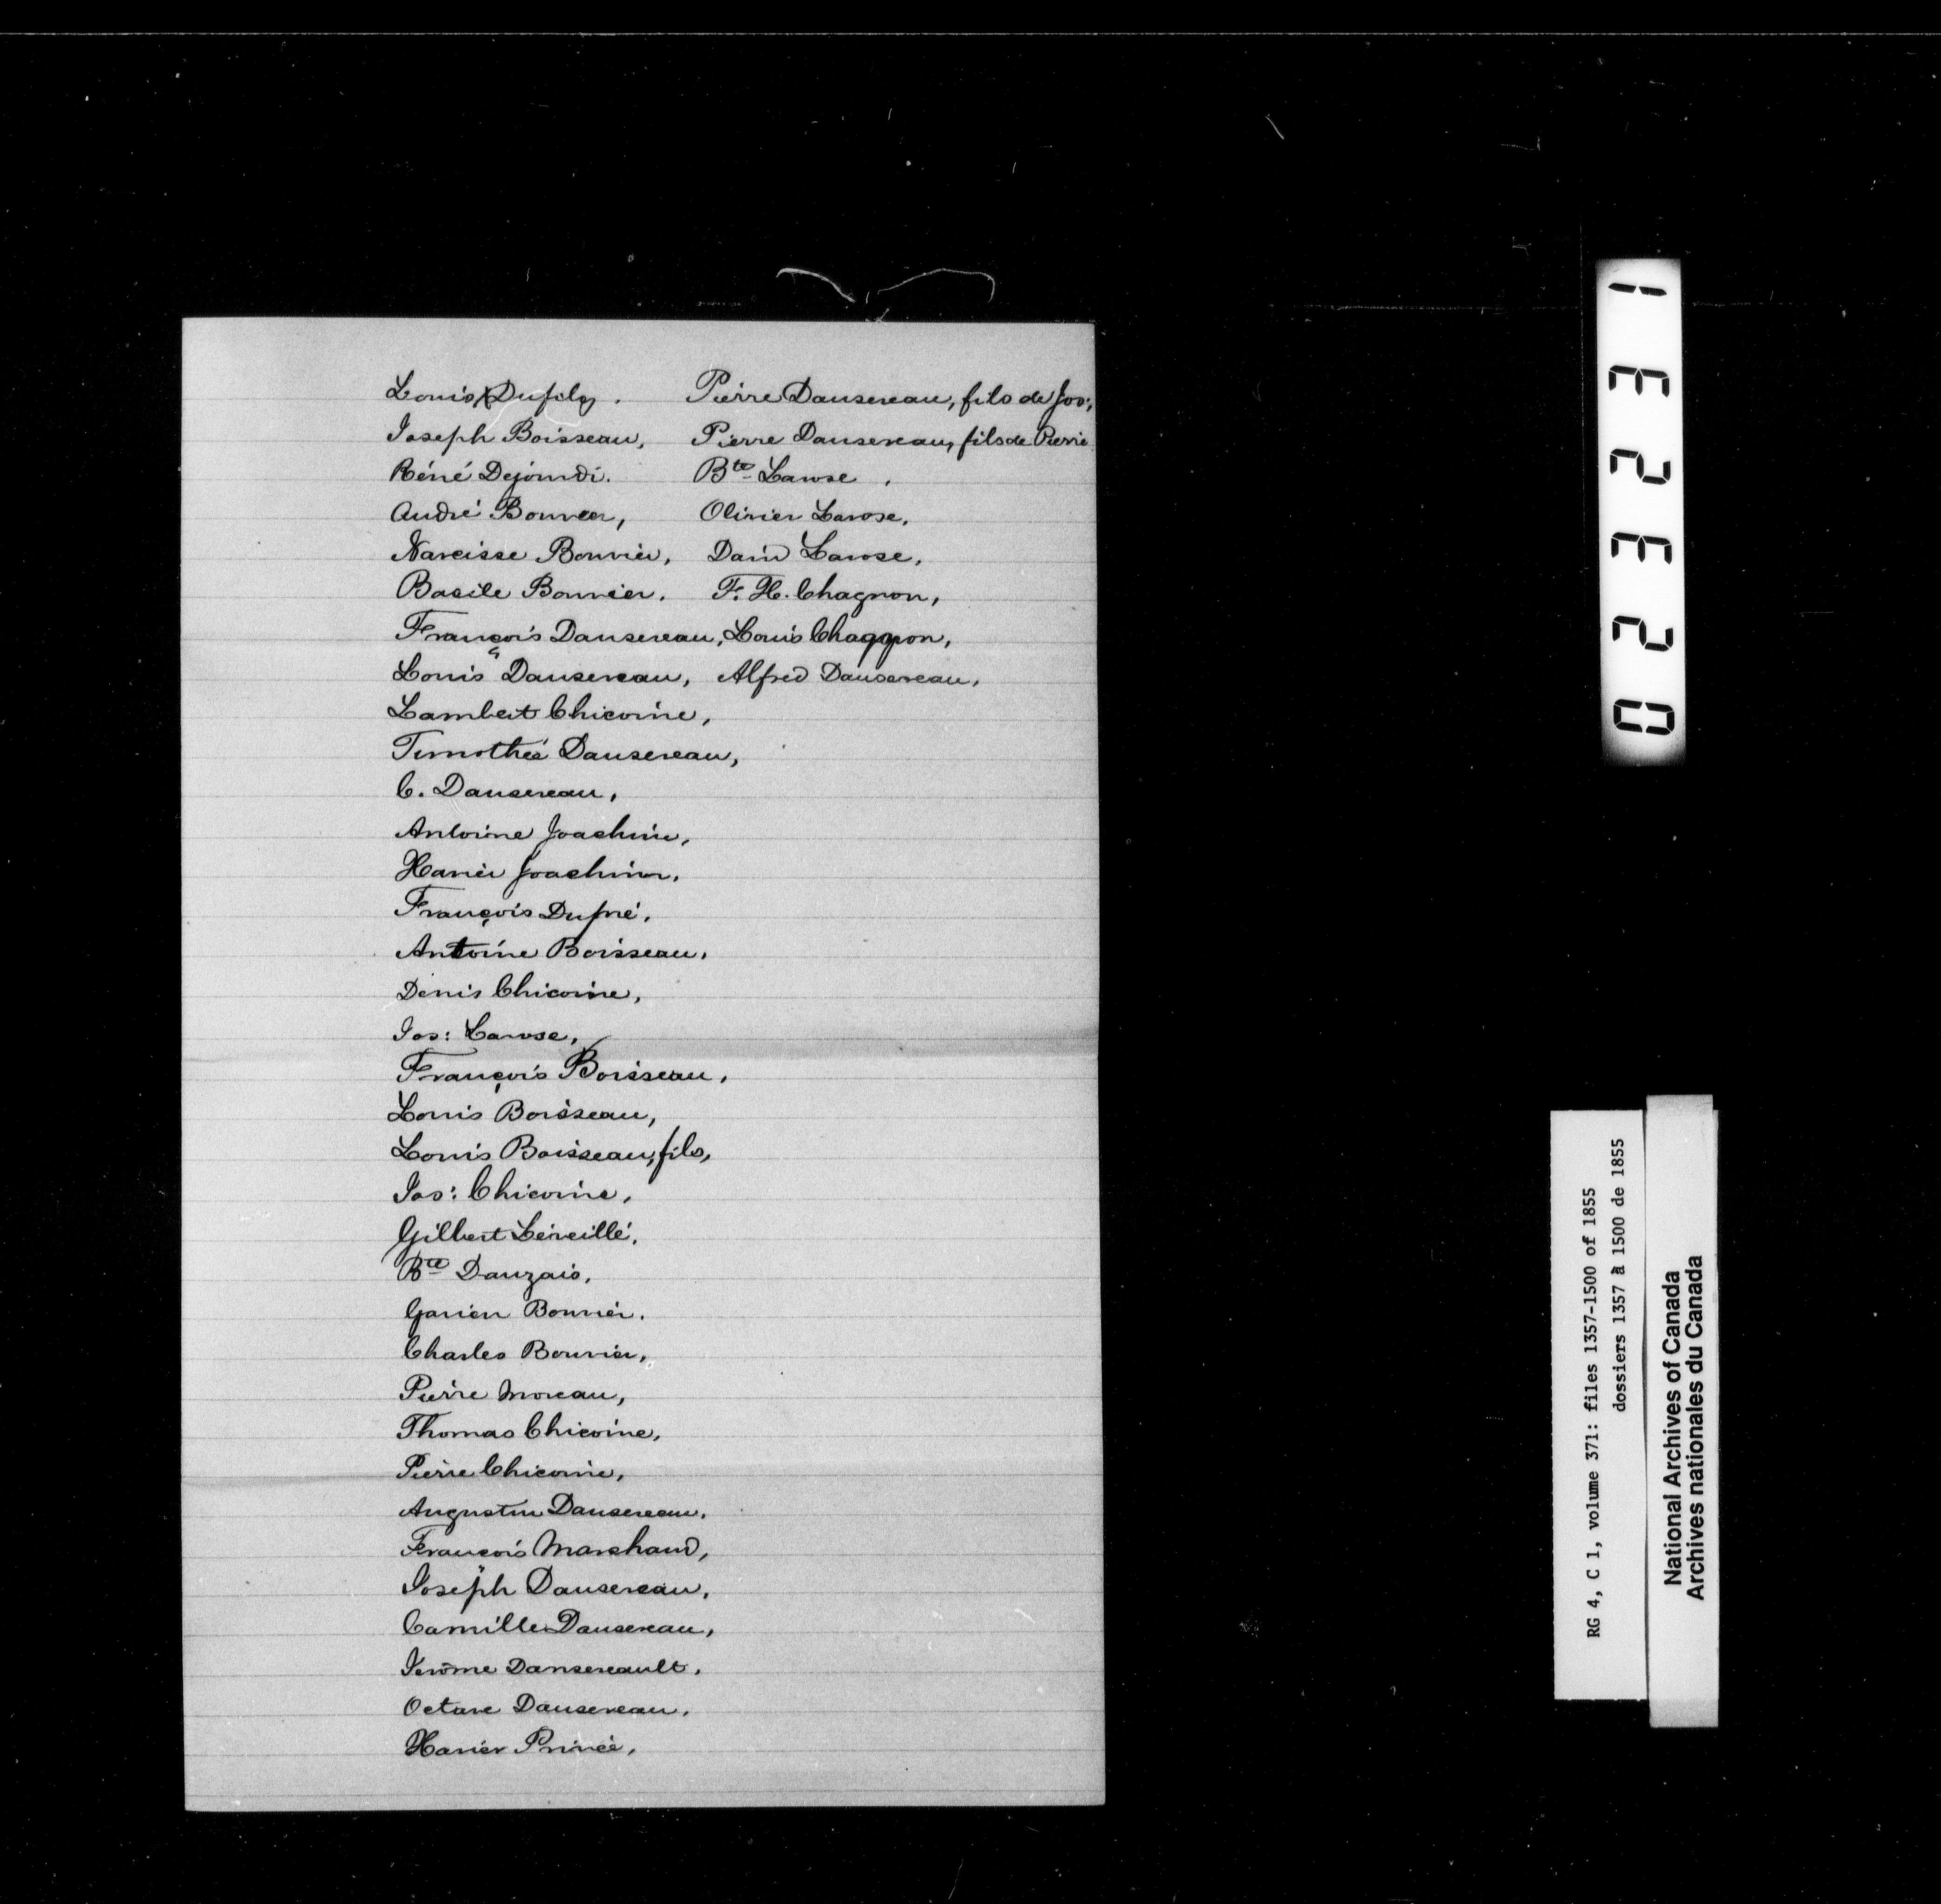 Louis Dufily. Pierre Dansereau, fils de Jos:,
Joseph Boisseau, Pierre Dansereau, fils de Pierre
Réné Dejourdi. Bte Larose,
André Bouvier, Olivier Larose,
Narcisse Bouvier, David Larose,
Basile Bouvier. F. X. Chagnon,
François Dansereau, Louis Chagnon,
Louis Dansereau, Alfred Dansereau,
Lambert Chicoine,
Timothée Dansereau,
C. Dansereau,
Antoine Joachim,
Xavier Joachim.
François Dupré.
Antoine Boisseau.
Denis Chicoine,
Jos: Larose,
François Boisseau,
Louis Boisseau,
Louis Boisseau, fils,
Jos: Chicoine,
Gilbert Léveillé.
Bte Dauzais.
Bouvier.
Charles Bouvier,
Pierre Moreau,
Thomas Chicoine,
Pierre Chicoine,
Augustin Dansereau.
François Marchand,
Joseph Dansereau.
Camille Dansereau,
Jerôme Dansereault.
Octave Dansereau.
Xavier Privée.
013230
RG 4, C 1, volume 371: files 1357-1500 of 1855
dossiers 1357 à 1500 de 1855
National Archives of Canada
Archives nationales du Canada